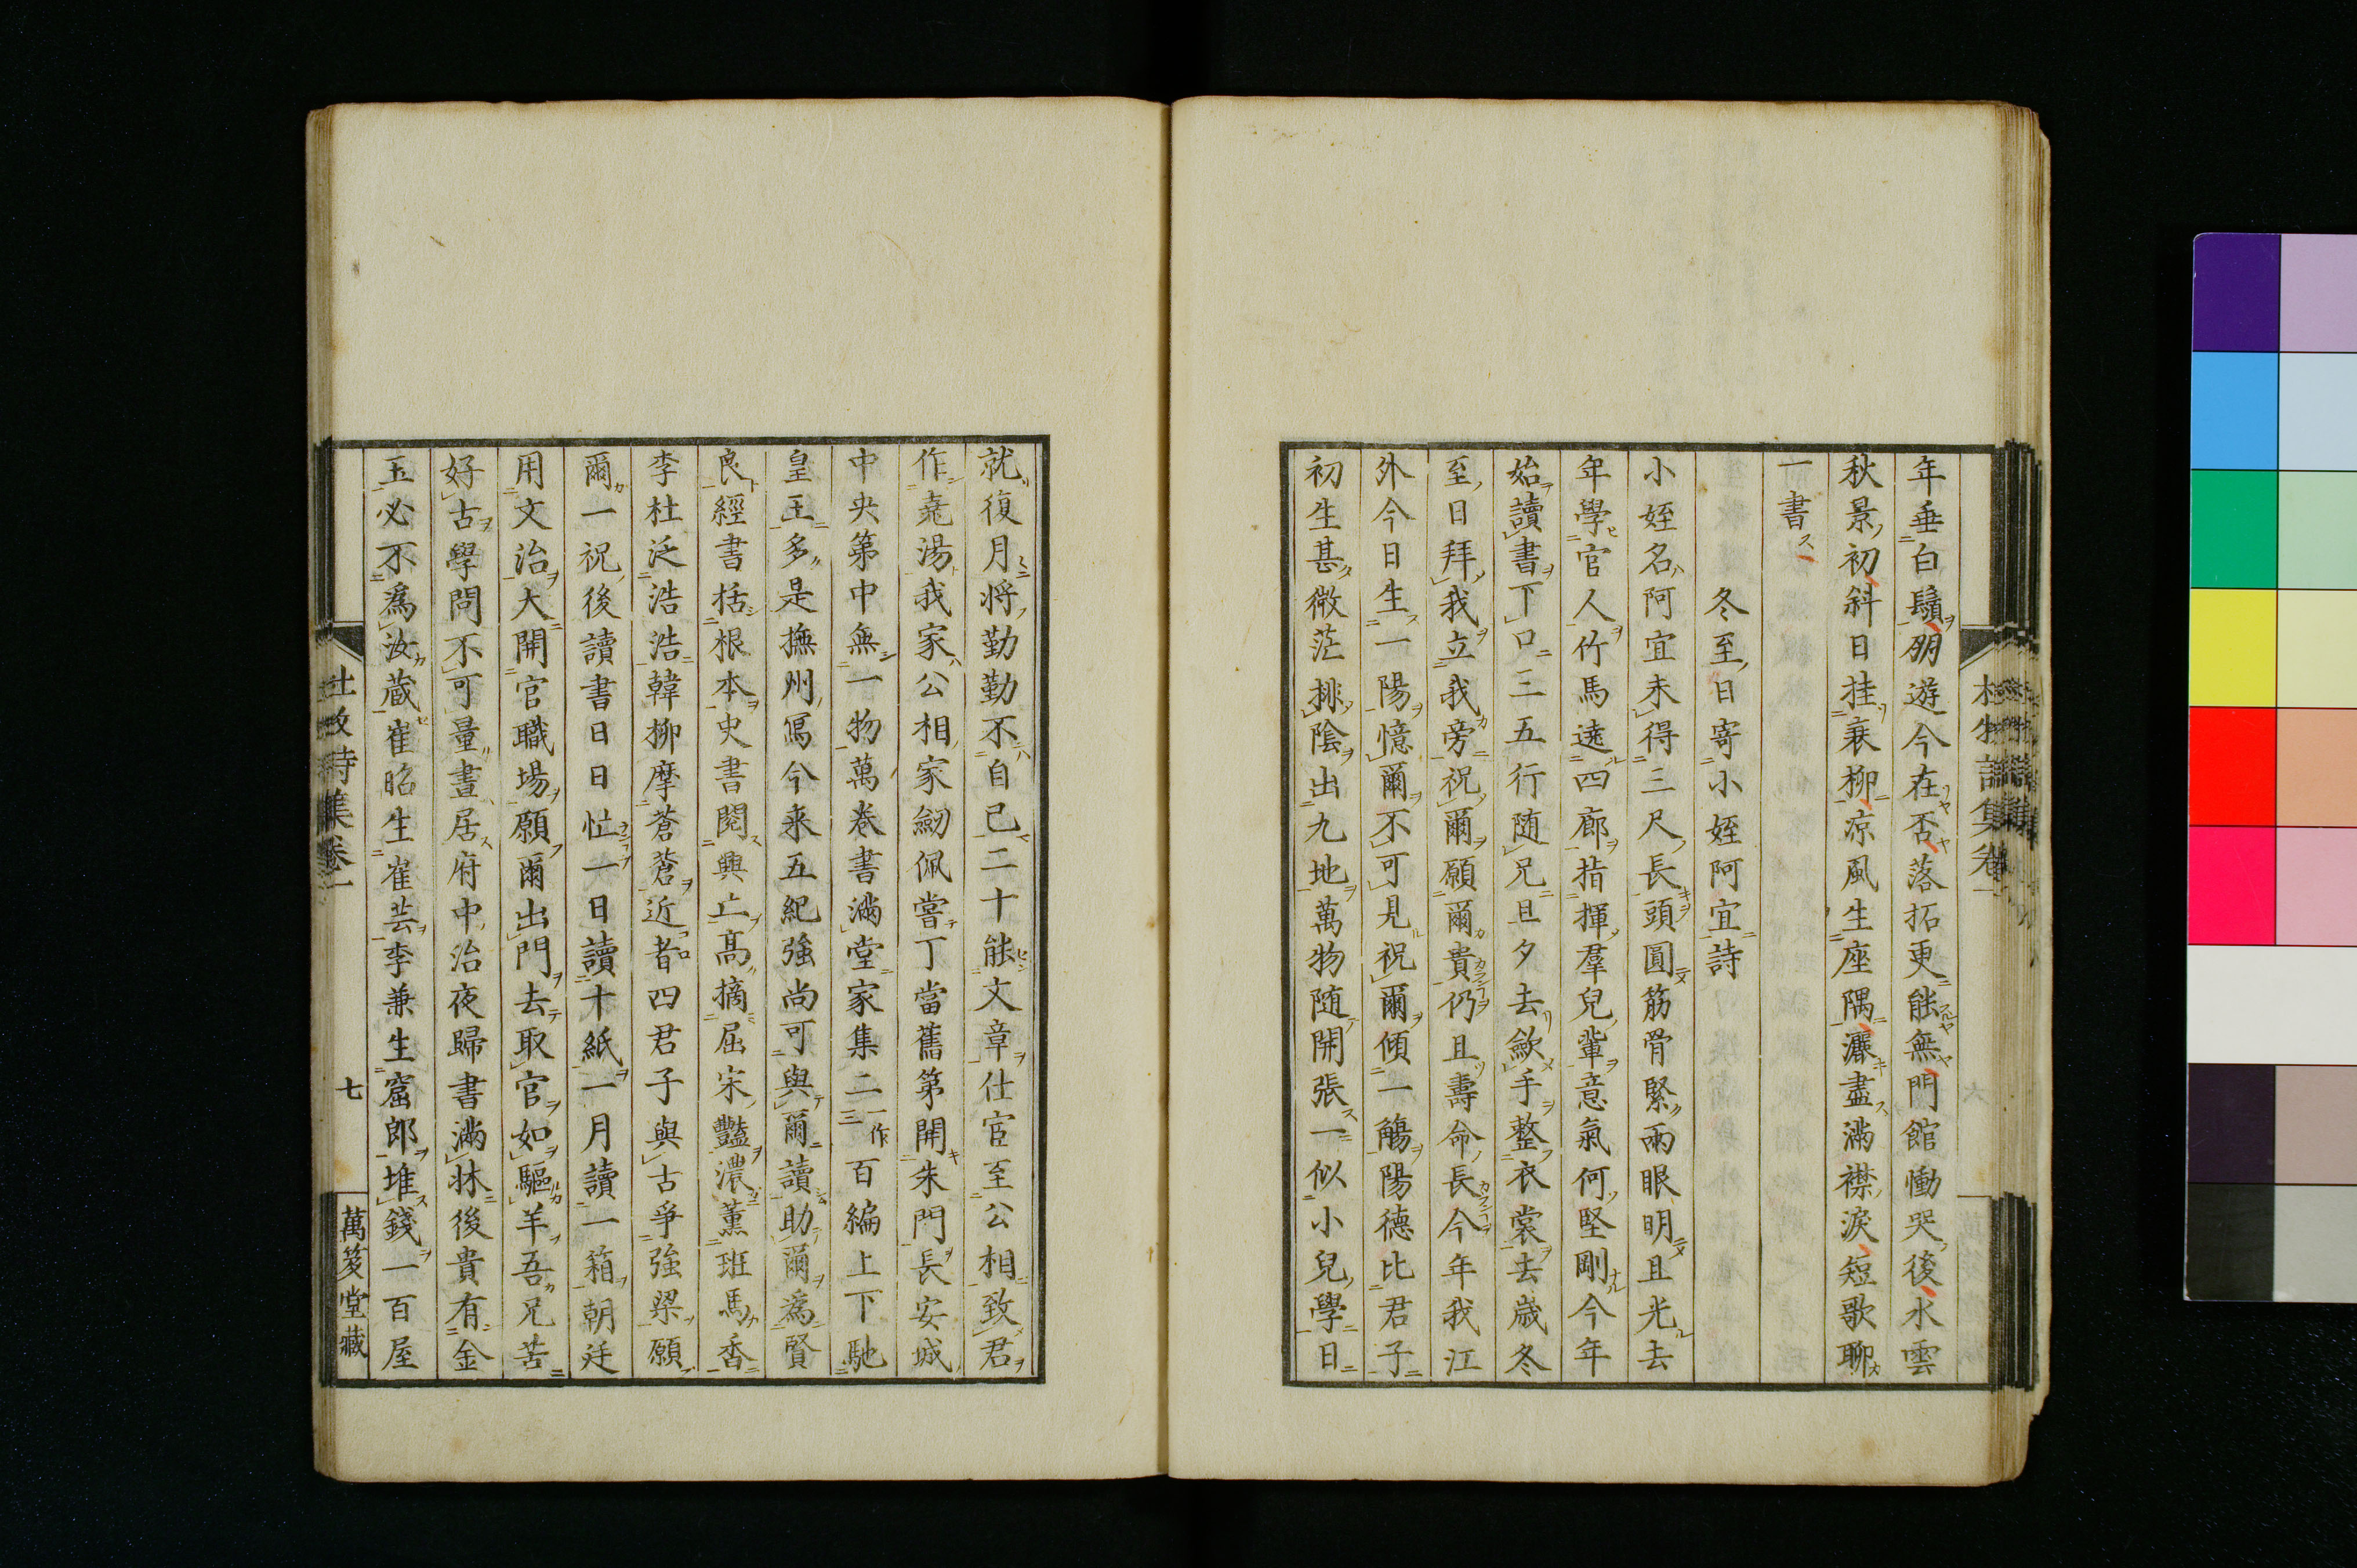 年垂白鬚朋遊今在否落拓更能無門館慟哭後水雲
秋景初斜日挂衰柳凉風生座隅灑盡滿襟淚短歌聊
一書
冬至日寄小姪阿宜詩
小姪名阿宜未得三尺長頭圓筋骨緊兩眼明且光去
年學官人竹馬遶四廊指揮羣兒輩意氣何堅剛今年
始讀書下口三五行随兄旦夕去歛手整衣裳去歲冬
至日拜我立我旁祝爾願爾貴仍且壽命長今年我江
外今日生一陽憶爾不可見祝爾傾一觴陽德比君子
初生甚微茫排陰出九地萬物随開張一似小兒學日
就復月將勤勤不自己二十能文章仕宦至公相致君
作堯湯我家公相家劒佩嘗丁當舊第開朱門長安城
中央第中無一物萬卷書滿堂家集二一作三百編上下馳
皇王多是撫州寫今来五紀強尚可與爾讀助爾為賢
良經書括根本史書閱興亡高摘屈宋豔濃薰班馬香
李杜泛浩浩韓柳摩蒼蒼近者四君子與古爭強梁願
爾一祝後讀書日日忙一日讀十紙一月讀一箱朝廷
用文治大開官職場願爾出門去取官如驅羊吾兄苦
好古學問不可量晝居府中治夜歸書滿牀後貴有金
玉必不為汝藏崔昭生崔芸李兼生窟郎堆錢一百屋
杜牧詩集卷一
七
萬笈堂藏